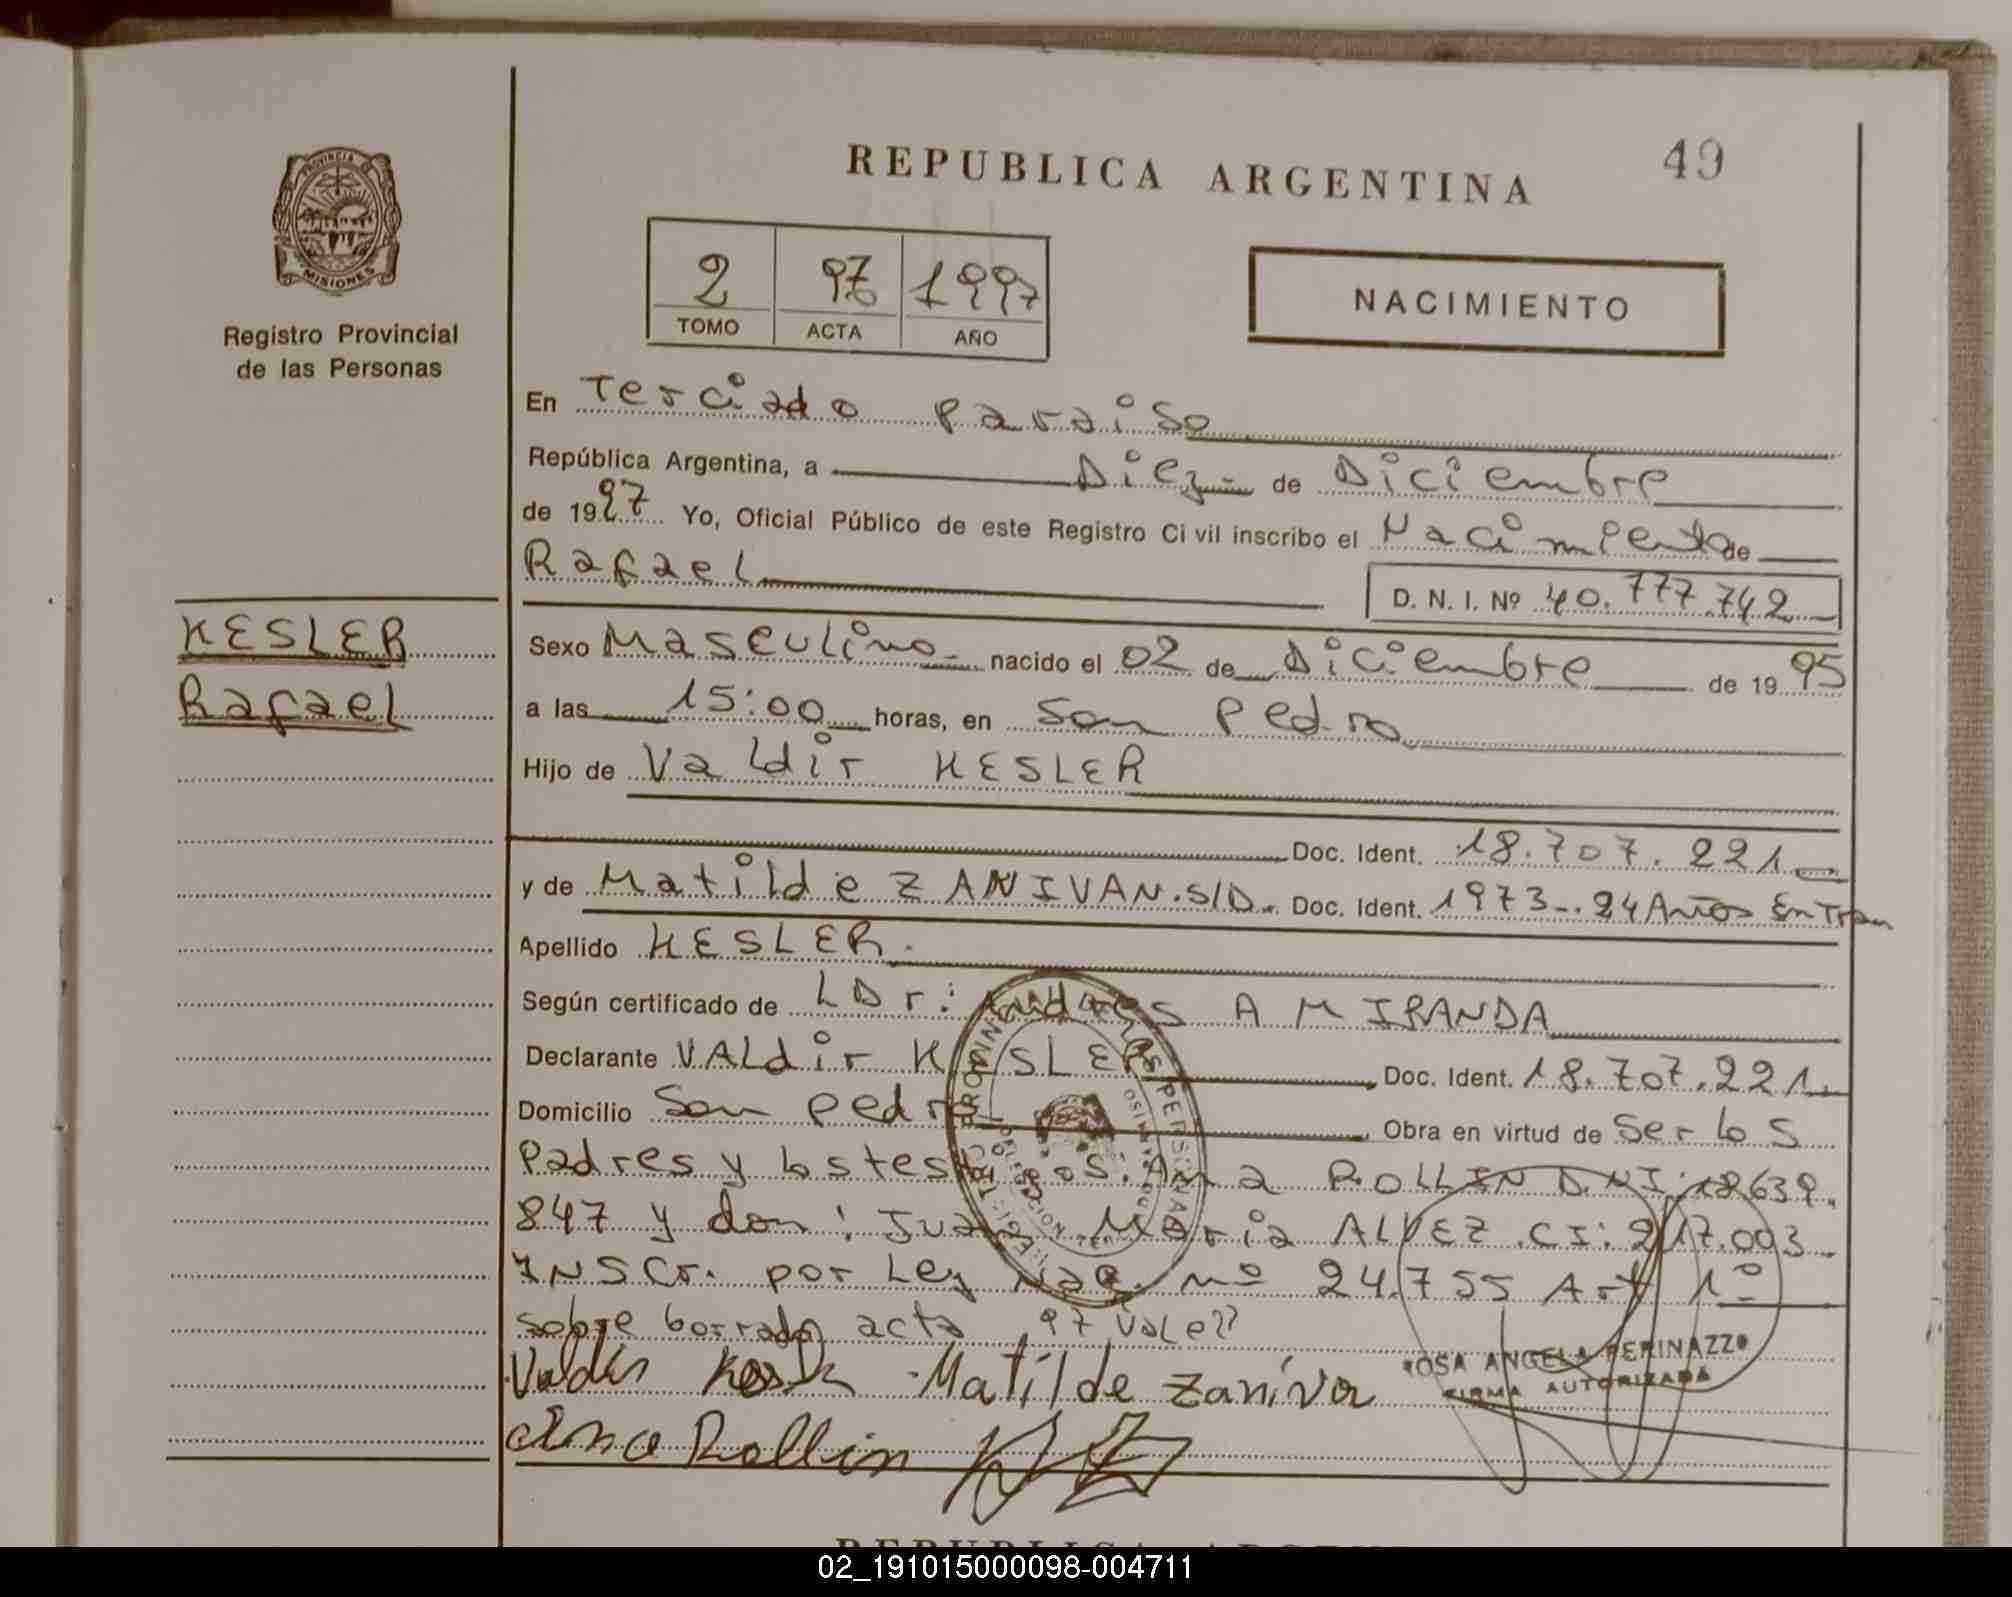 REPUBLICA ARGENTINA
49
PROVINCIA DE
MISIONES
Registro Provincial
de las Personas
2 97 1997
TOMO ACTA AÑO
NACIMIENTO
En Terciado Paraiso
República Argentina, a Diez de Diciembre
de 1997 Yo, Oficial Público de este Registro Civil inscribo el Nacimiento de
Rafael
D. N. I. Nº 40.777.742
KESLER
Rafael
Sexo Masculino nacido el 02 de Diciembre de 1995
a las 15:00 horas, en San Pedro
Hijo de Valdir KESLER
Doc. Ident. 18.707.221
y de Matilde ZANIVAN.S/D. Doc. Ident. 1973-.24 Años En Tram
Apellido KESLER.
Según certificado de LDr: Andres A MIRANDA
Declarante VALdir KESLER Doc. Ident. 18.707.221
Domicilio San Pedro Obra en virtud de Ser los
Padres y los testigos: Ana ROLLIN D.N.I: 18639.
847 y don: Juan Maria ALVEZ.CI: 217.003
INSCr. por Ley Nac. nº 24.755 Art 1º
sobre borrado acta 97 Vale"
Valdir Kesler Matilde Zanivan
ROSA ANGELA PERINAZZO
FIRMA AUTORIZADA
Ana Rollin
REPUBLICA ARGENTINA
02_191015000098-004711